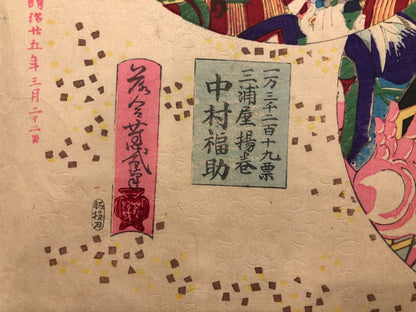 一万三千二百十九票
三浦屋揚巻
中村福助
落合芳幾筆
明治廿五年三月二十二日